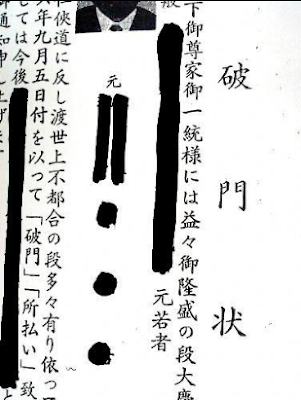 破門状
下御尊家御一統様には益々御隆盛の段大慶
元若者
元
侠道に反し渡世上不都合の段多々有り依っ
年九月五日付を以って「破門」「所払い」致
しては今後
御通知申し上げます